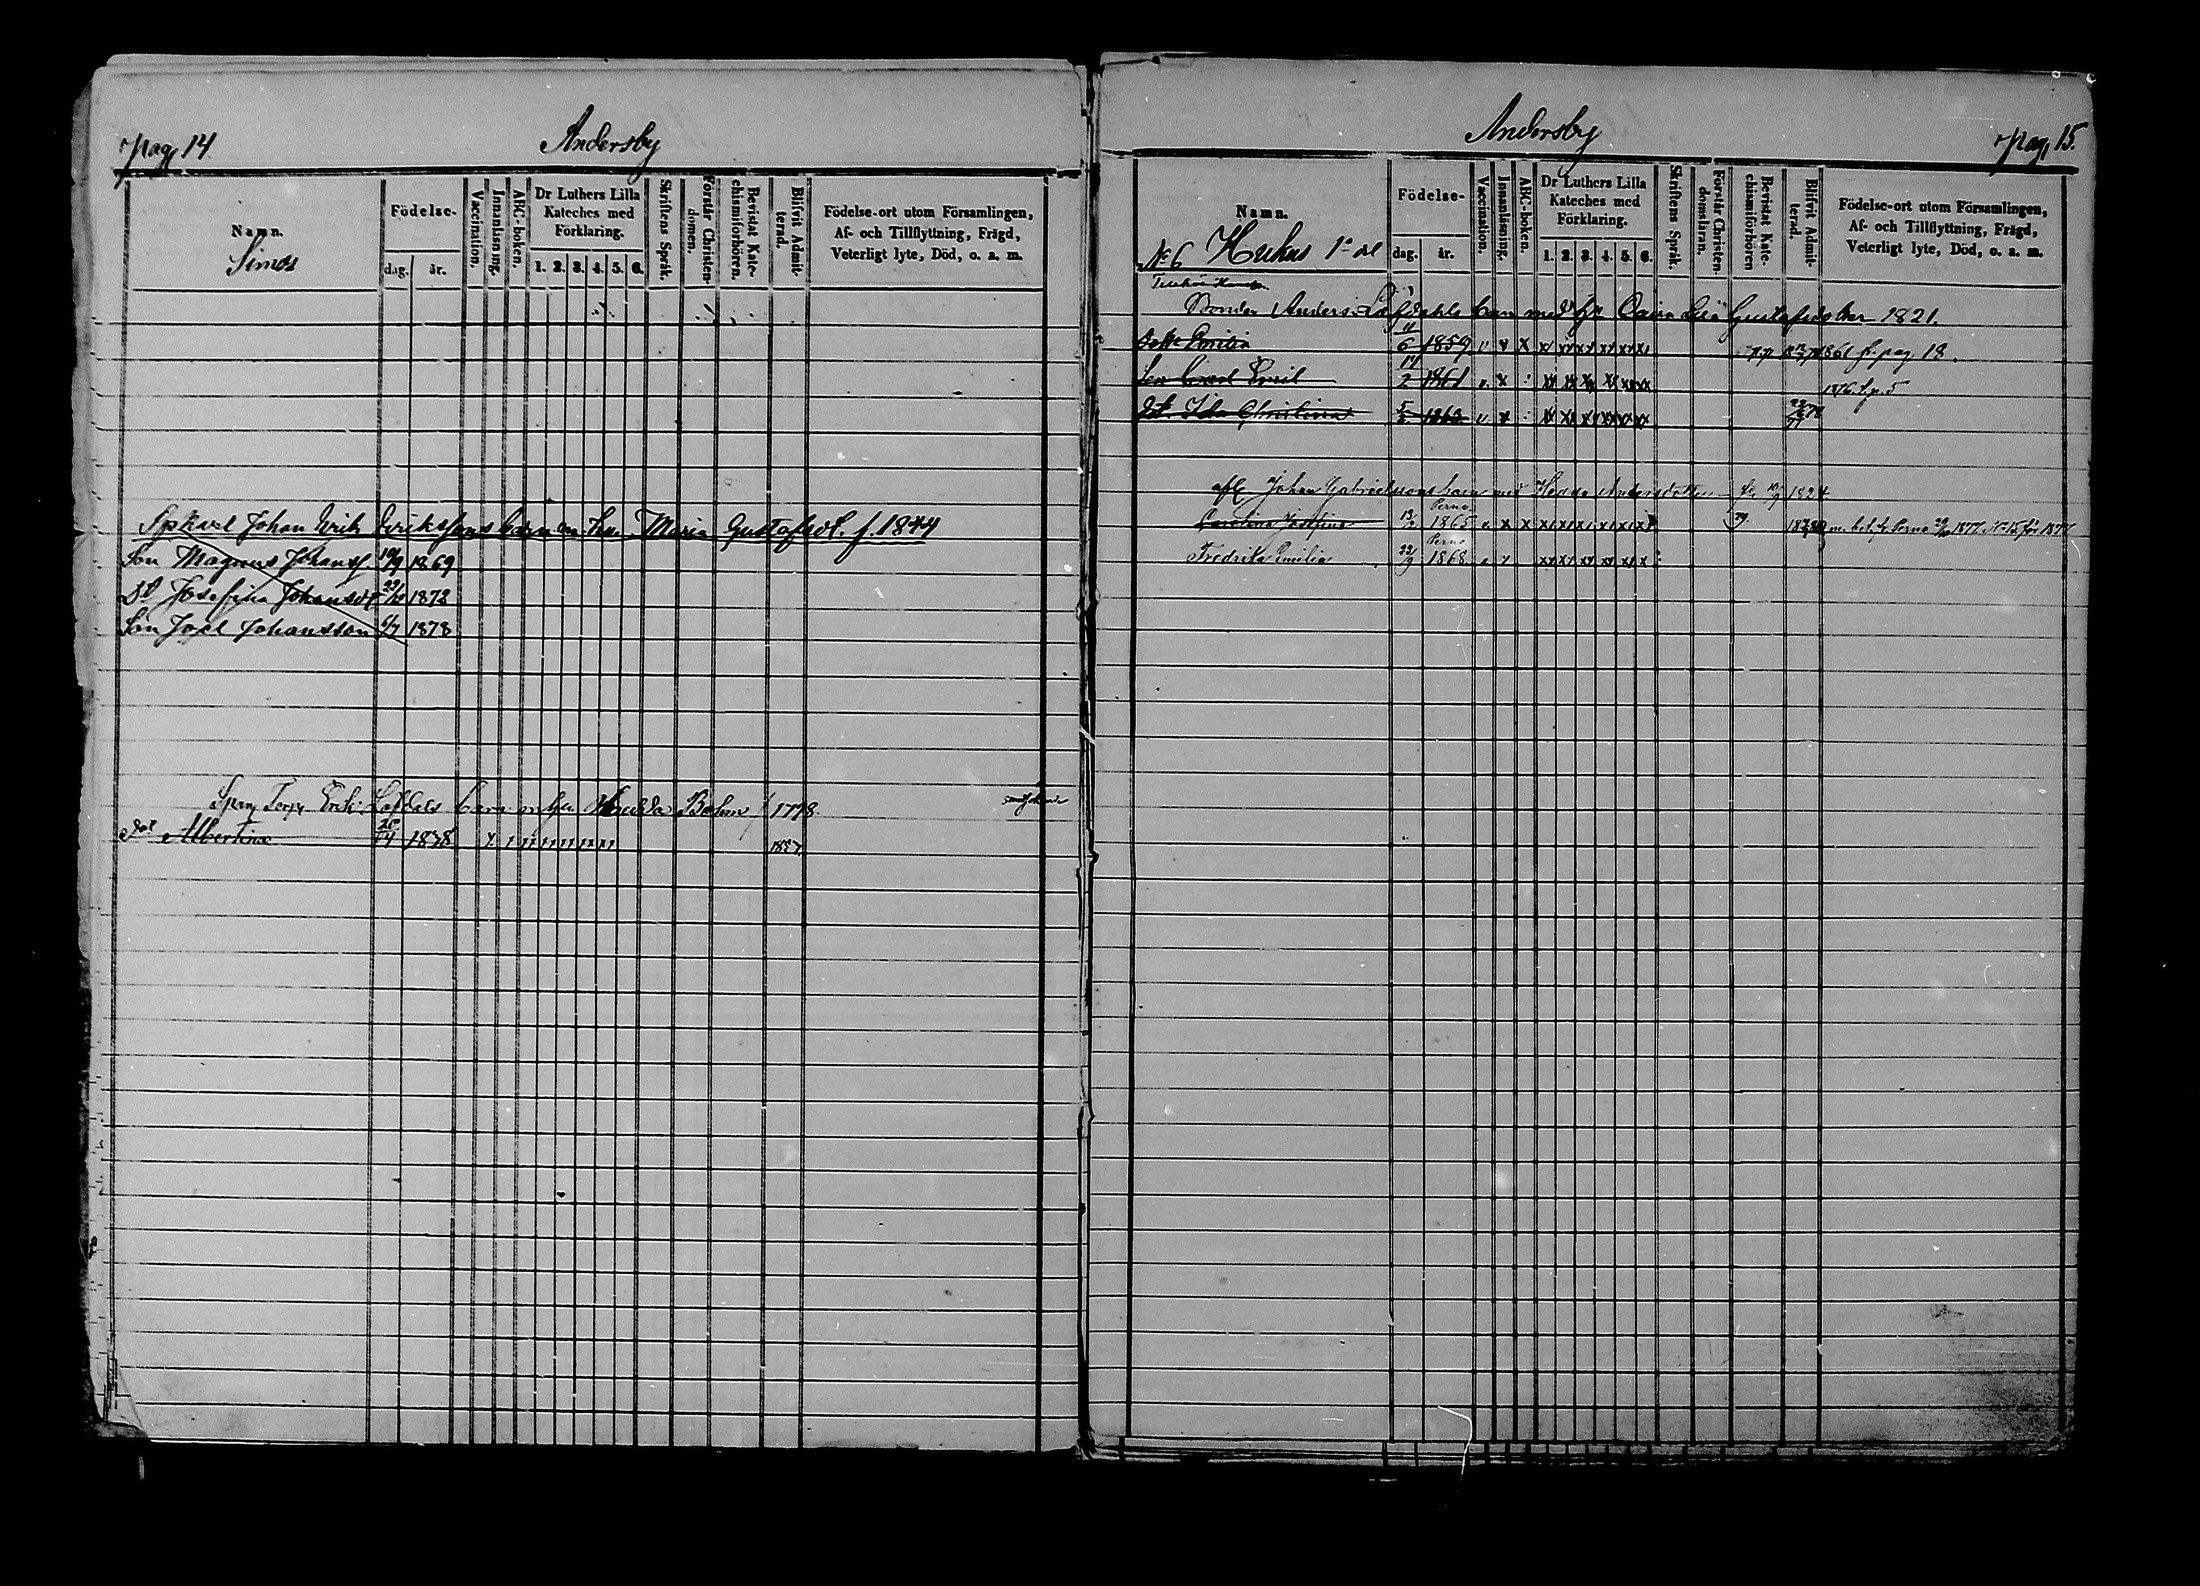 pag 14.
Andersby
Namn.
Simos
Födelse-
dag. år.
Vaccination.
Innanläsning.
ABC-boken.
Dr Luthers Lilla Kateches med Förklaring.
1. 2. 3. 4. 5. 6.
Skriftens Språk.
Förstår Christendomen.
Bevistat Katechismiförhören.
Blifvit Admitterad.
Födelse-ort utom Församlingen,
Af- och Tillflyttning, Frägd,
Veterligt lyte, Död, o. a. m.
Johan Erik Erikssons barn m. hu. Maria Gustafsdt. f. 1844
Son Magnus Johanss. 10/9 1869
Dt Josefina Johansdt 1872
Son Johansson 6/7 1878
Torp. Erik Löfdals barn m hu Hedda Bohm f 1778.
Dot Albertina 1838 x x x x x x x x x 1857
Andersby
pag 15.
Namn.
No 6 Hukus 1a del
Födelse-
dag. år.
Vaccination.
Innanläsning.
ABC-boken.
Dr Luthers Lilla Kateches med Förklaring.
1. 2. 3. 4. 5. 6.
Skriftens Språk.
Förstår Christendomsläran.
Bevistat Katechismiförhören
Blifvit Admitterad.
Födelse-ort utom Församlingen,
Af- och Tillflyttning, Frägd,
Veterligt lyte, Död, o. a. m.
Bonden Anders Löfdahls barn med hu Caisa Lisa Gustafsdotter 1821.
Emilia 11/6 1859 v x x xx xx xx xx xx xx fr. pag. 18.
Son Emil 14/2 1861 v. x xx xx xx xx xx xx 1876 t. p. 5
Dt Ida Christina 1863 v. x xx xx xx xx xx xx
afl. Johan Gabrielssons barn med Hedda Andersdotter 1824
Perno
Carolina Josefina 13/ 1865 v. x x xx xx xx xx xx xx m. bet. fr. Perno 1877. No 15 för 1877
Perno
Fredrika Emilia 22/9 1868 v x xx xx xx xx xx x